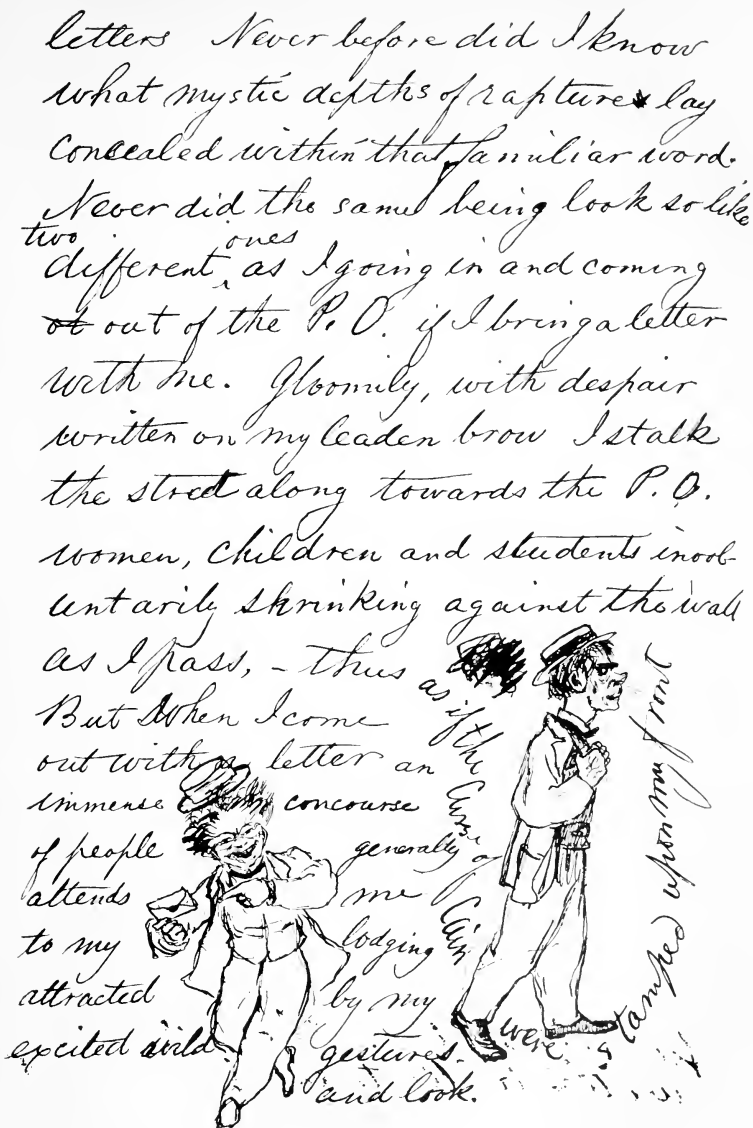 letters Never before did I know
what mystic depths of rapture lay
concealed within that familiar word.
Never did the same being look so like
two different ones as I going in and coming
out of the P.O. if I bring a letter
with me. Gloomily, with despair
written on my leaden brow I stalk
the street along towards the P.O.
women, children and students invol-
untarily shrinking against the wall
as I pass, – thus
as if the curse of Cain were stamped upon my front
But when I come
out with a letter an
immense concourse
of people generally
attends me
to my lodging
attracted by my
excited wild gestures
and look.